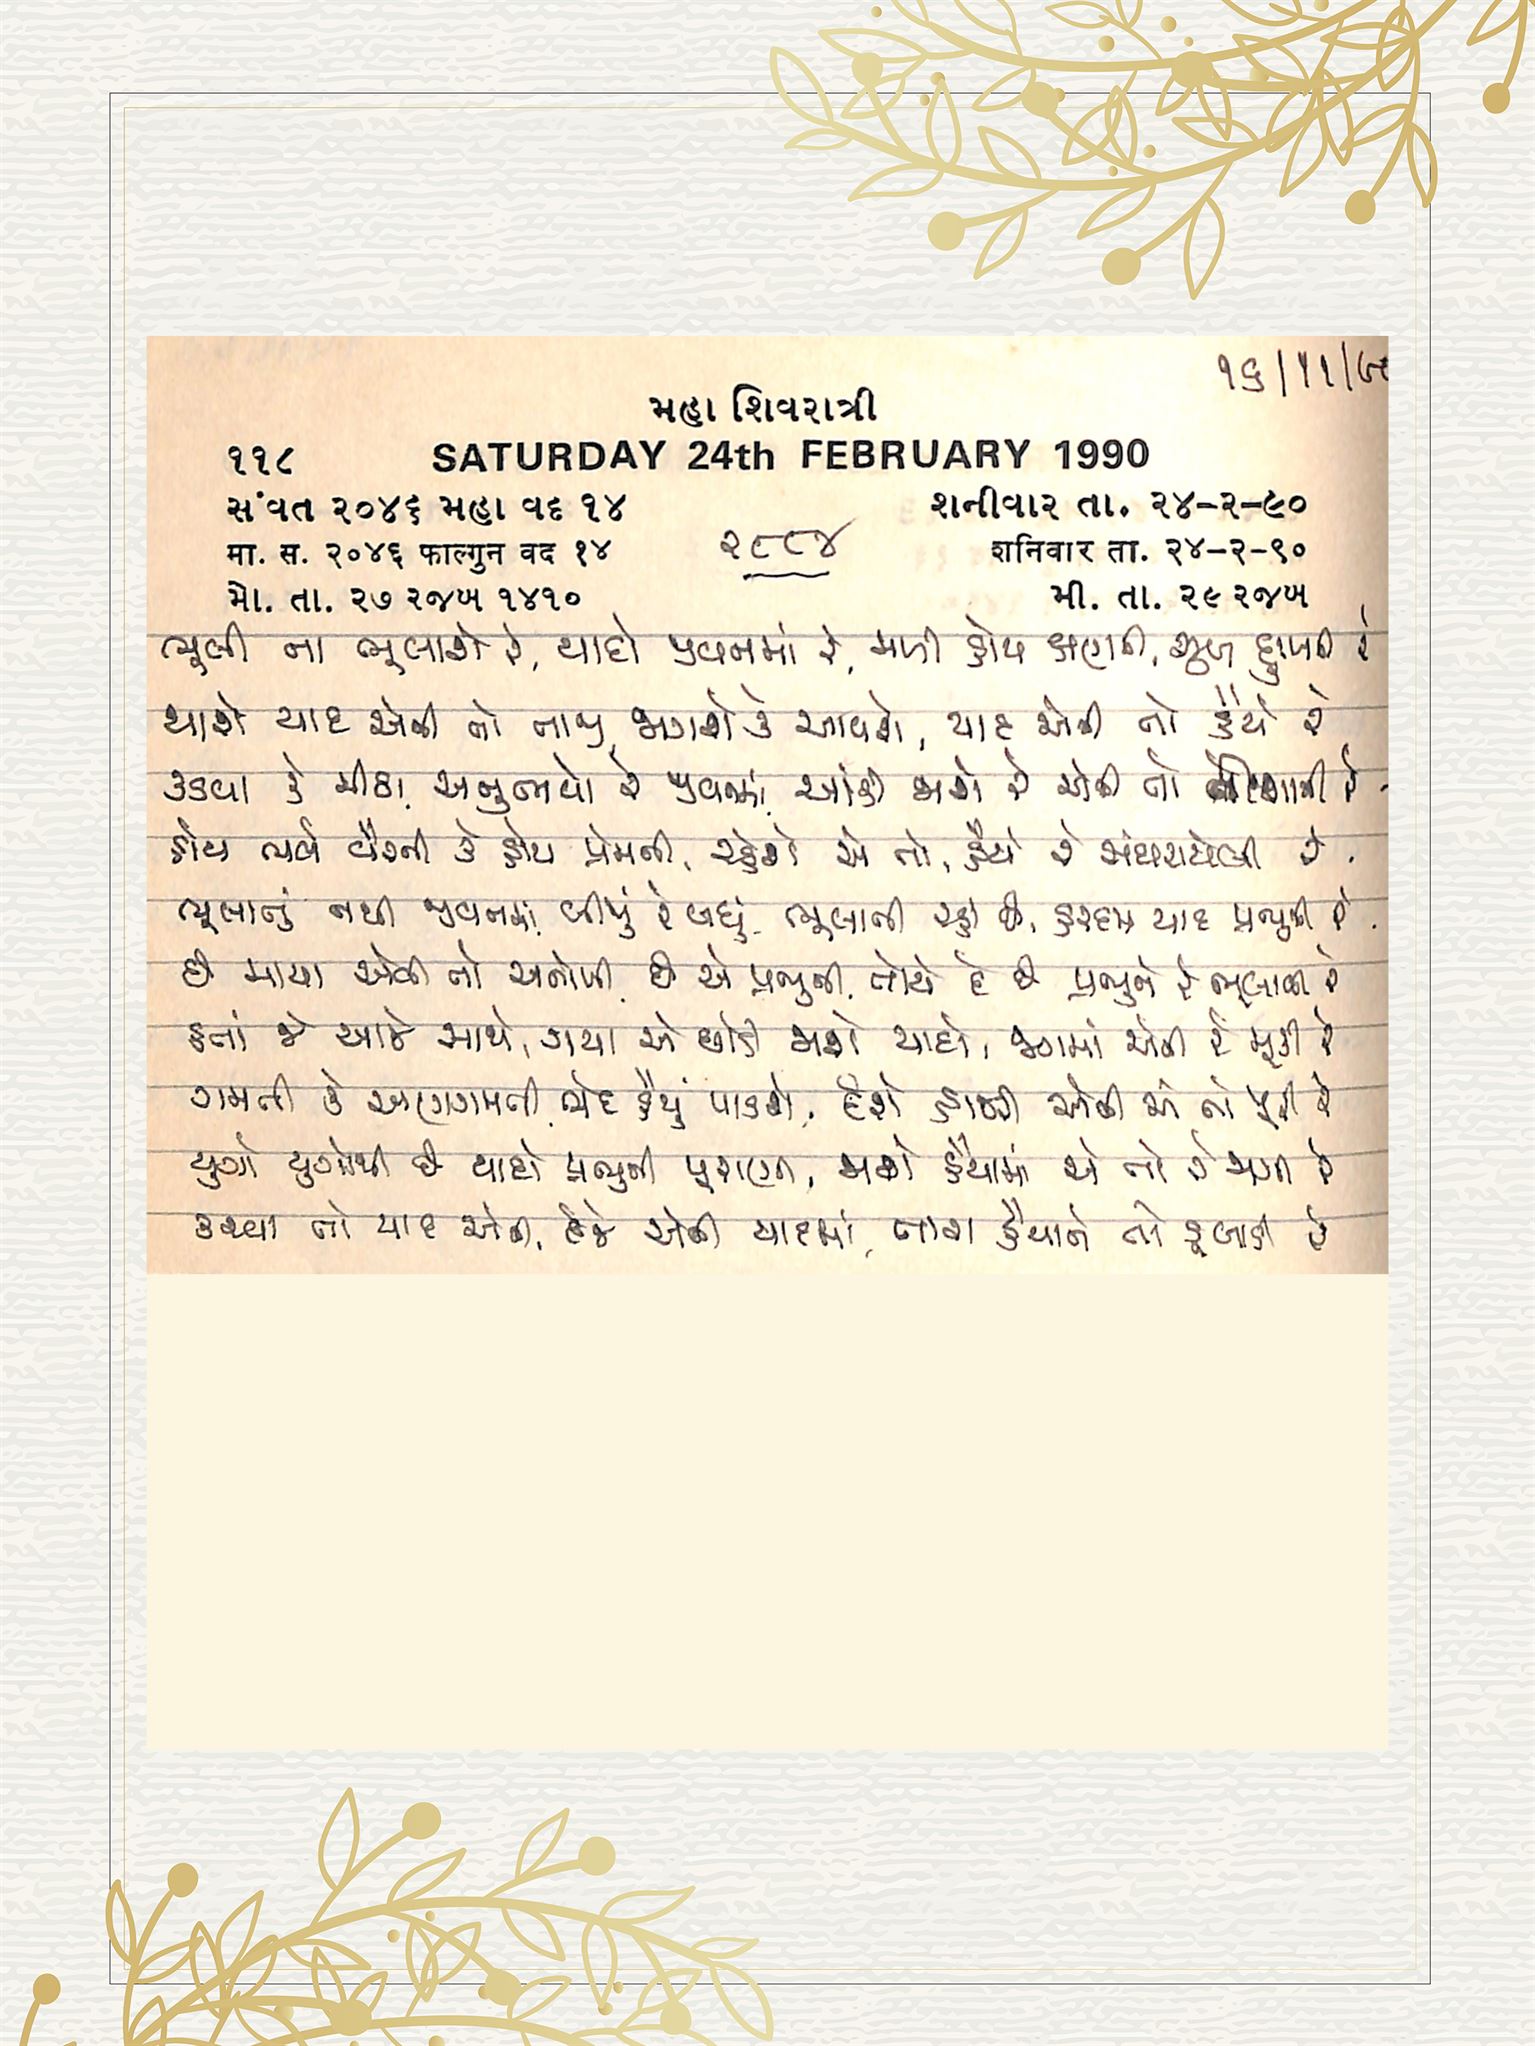 ૧૬/૧૧/૯૦
મહા શિવરાત્રી
૧૧૮ SATURDAY 24th FEBRUARY 1990
સંવત ૨૦૪૬ મહા વદ ૧૪ શનીવાર તા. ૨૪-૨-૯૦
मा. स. २०४६ फाल्गुन वद १४ ૨૮૮૪ शनिवार ता. २४-२-९०
મો. તા. ૨૭ રજબ ૧૪૧૦ મી. તા. ૨૯ રજબ
ભૂલી ના ભૂલાશે રે, યાદો જીવનમાં રે, મળી કોય ક્ષણની, સુખ દુઃખની રે
થાશે યાદ એની તો તાજી, જાગશે કે આવશે, યાદ એની તો હૈયે રે
કડવા કે મીઠા અનુભવો રે જીવનમાં આંકી જાશે રે એની તો રે
કોય ભર્વ વૈરની કે કોય પ્રેમની, રહેશે એ તો, હૈયે રે સંઘરાયેલી રે.
ભૂલાનું નથી જીવનમાં બીજું રે બધું ભૂલાતી રહી છે, હરદમ યાદ પ્રભુની રે.
છે માયા એની તો અનોખી છે એ પ્રભુની, તોયે દે છે પ્રભુને રે ભૂલાવી રે
હતાં જે આજે સાથે, ગયા એ છોડી જાશે યાદો, જગમાં એની રે મૂકી રે
ગમતી કે અણગમતી ભેદ હૈયું પાડશે, દેશે એની એ તો રે
યુગો યુગોથી છે યાદો પ્રભુની પૂરાણી, જાશે હૈયામાં એ તો રે જાગી રે
કરવા તો યાદ એની, દેજે એની યાદમાં, તારા હૈયાને તો ડૂબાડી રે